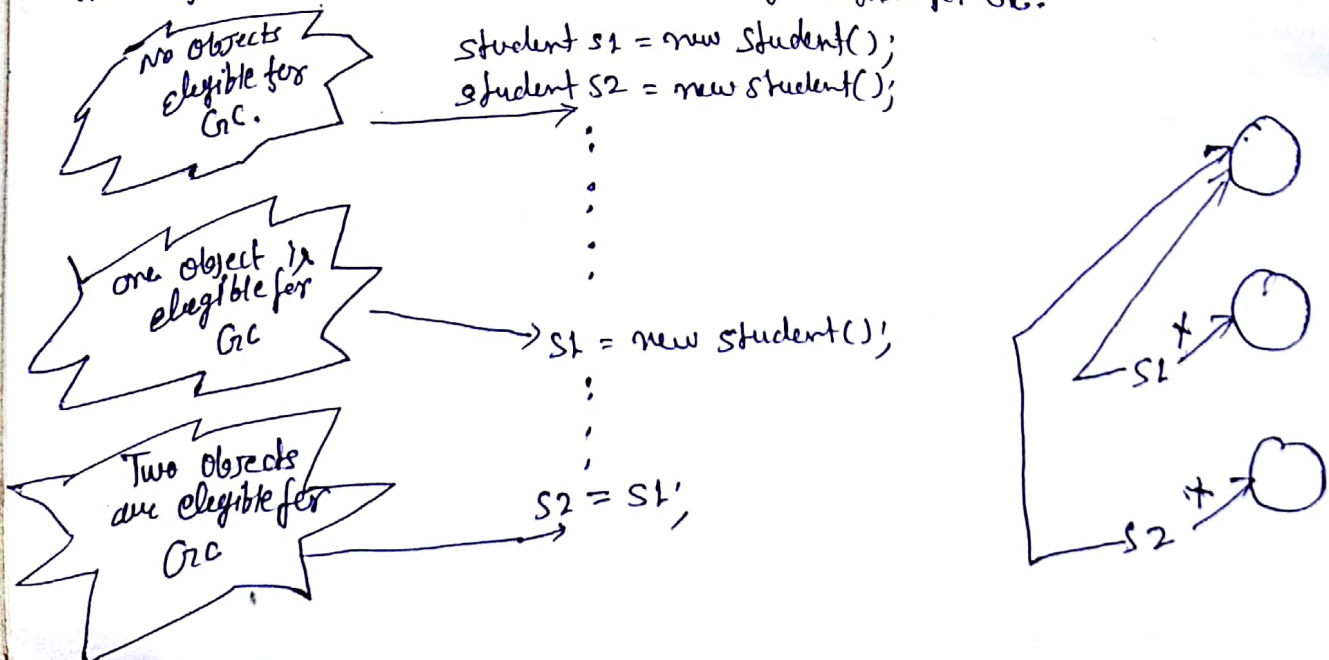 No objects
elegible for
GC.
student s1 = new student();
student s2 = new student();
one object is
elegible for
GC
s1 = new student();
Two objects
are elegible for
GC
s2 = s1;
s1
s2